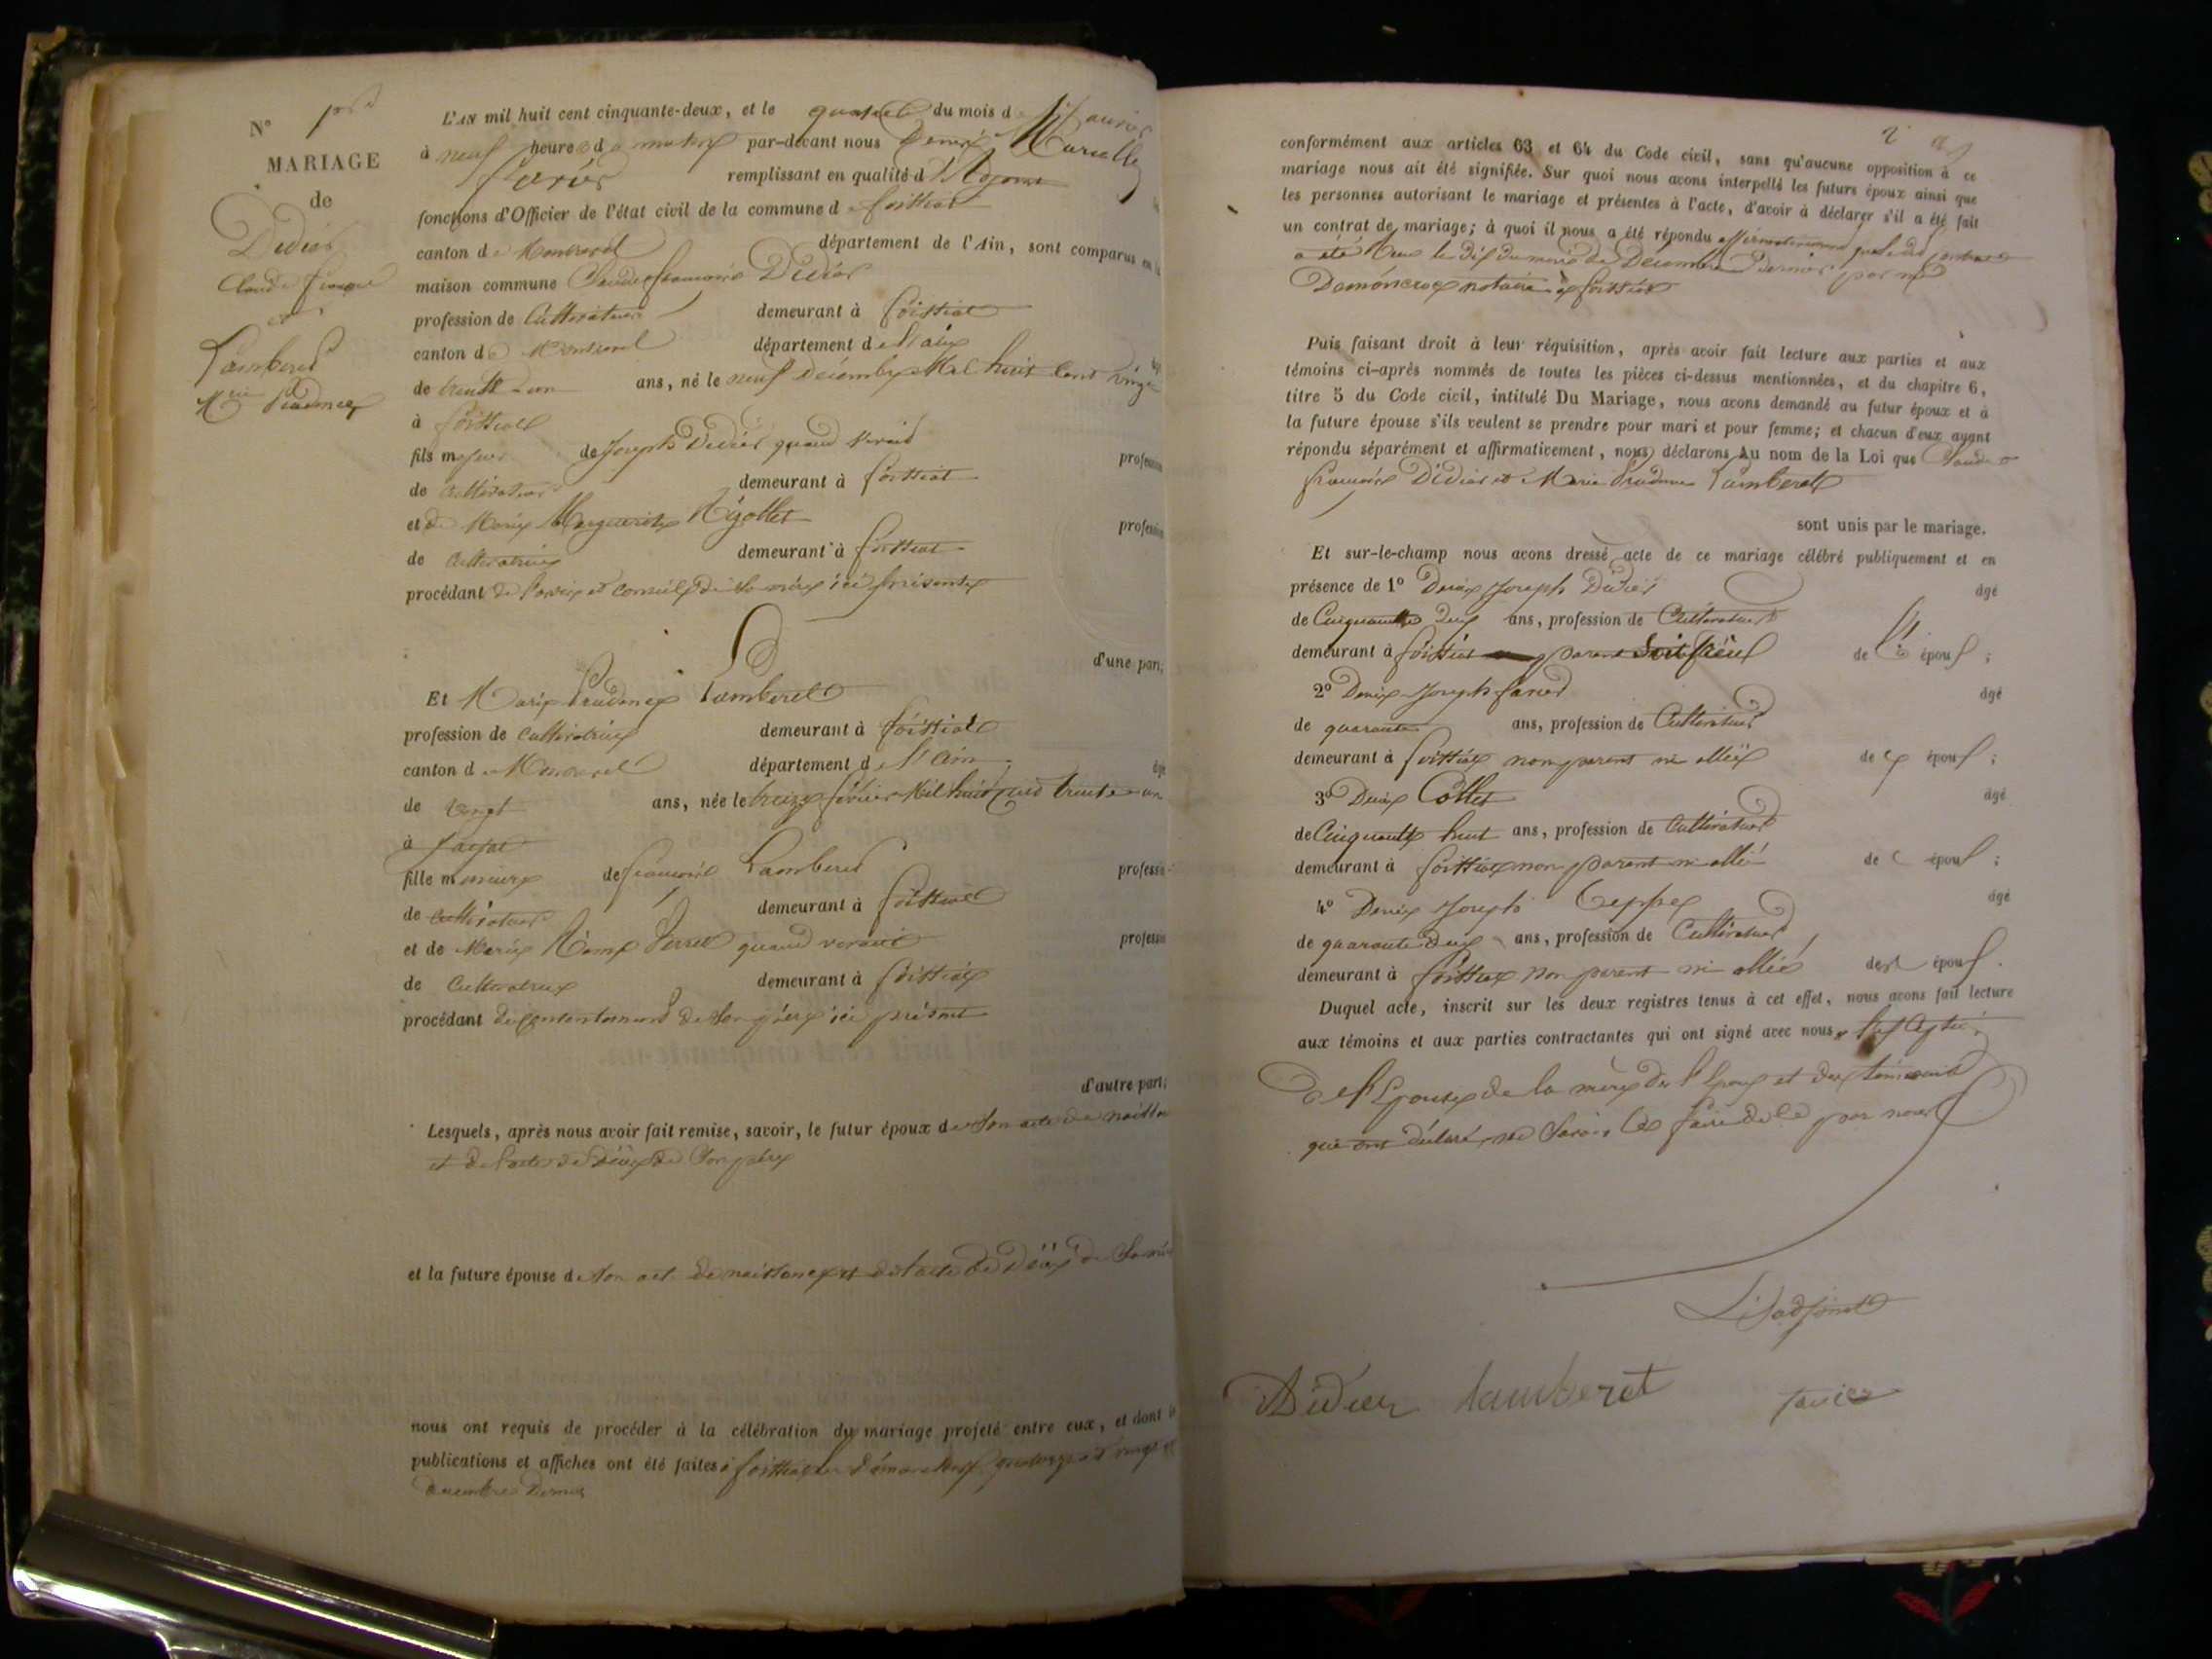 N° 1er
MARIAGE
de
Didier
Claude François
et
Lamberet
Mie Prudence
L'AN mil huit cent cinquante-deux, et le du mois de Janvier
à neuf heures du matin par-devant nous Denis Marcelle
Favier remplissant en qualité d'Adjoint
fonctions d'Officier de l'état civil de la commune de Foissiat
canton de Montrevel département de l'Ain, sont comparus en la
maison commune Claude François Didier
profession de Cultivateur demeurant à Foissiat
canton de Montrevel département de l'ain
de trente un ans, né le neuf décembre Mil huit cent vingt
à Foissiat
fils majeur de Joseph Didier quand vivait profession
de cultivateur demeurant à Foissiat
et de Marie Marguerite profession
de cultivatrice demeurant à Foissiat
procédant de l'avis et conseil de sa mère ici présente
d'une part;
Et Marie Prudence Lamberet
profession de cultivatrice demeurant à Foissiat
canton de Montrevel département de l'Ain
de vingt ans, née le treize février Mil huit cent trente un
à Jayat
fille mineure de François Lamberet profession
de cultivateur demeurant à Foissiat
et de Marie quand vivait profession
de Cultivatrice demeurant à Foissiat
procédant du consentement de son père ici présent
d'autre part;
Lesquels, après nous avoir fait remise, savoir, le futur époux de son acte de naissance
et de l'acte de décès de son père
et la future épouse de son acte de naissance et de l'acte de décès de sa mère
nous ont requis de procéder à la célébration du mariage projeté entre eux, et dont les
publications et affiches ont été faites à Foissiat les dimanches quatorze et vingt et
décembre dernier
conformément aux articles 63 et 64 du Code civil, sans qu'aucune opposition à ce
mariage nous ait été signifiée. Sur quoi nous avons interpellé les futurs époux ainsi que
les personnes autorisant le mariage et présentes à l'acte, d'avoir à déclarer s'il a été fait
un contrat de mariage; à quoi il nous a été répondu affirmativement que ledit contrat
a été reçu le dix du mois de Décembre dernier par me
notaire à Foissiat
Puis faisant droit à leur réquisition, après avoir fait lecture aux parties et aux
témoins ci-après nommés de toutes les pièces ci-dessus mentionnées, et du chapitre 6,
titre 5 du Code civil, intitulé Du Mariage, nous avons demandé au futur époux et à
la future épouse s'ils veulent se prendre pour mari et pour femme; et chacun d'eux ayant
répondu séparément et affirmativement, nous déclarons Au nom de la Loi que Claude
François Didier et Marie Prudence Lamberet
sont unis par le mariage.
Et sur-le-champ nous avons dressé acte de ce mariage célébré publiquement et en
présence de 1° Denis Joseph Didier âgé
de Cinquante deux ans, profession de Cultivateur
demeurant à Foissiat parent de l' époux;
2° Denis Joseph âgé
de quarante ans, profession de Cultivateur
demeurant à Foissiat non parent ni allié des époux;
3° Denis Collet âgé
de Cinquante huit ans, profession de Cultivateur
demeurant à Foissiat non parent ni allié des époux;
4° Denis Joseph âgé
de quarante deux ans, profession de Cultivateur
demeurant à Foissiat non parent ni allié des époux.
Duquel acte, inscrit sur les deux registres tenus à cet effet, nous avons fait lecture
aux témoins et aux parties contractantes qui ont signé avec nous,
de l'Epouse de la mère de l'Epoux et des témoins
qui ont déclaré ne savoir le faire de ce par nous
L'adjoint
Didier Lamberet Favier